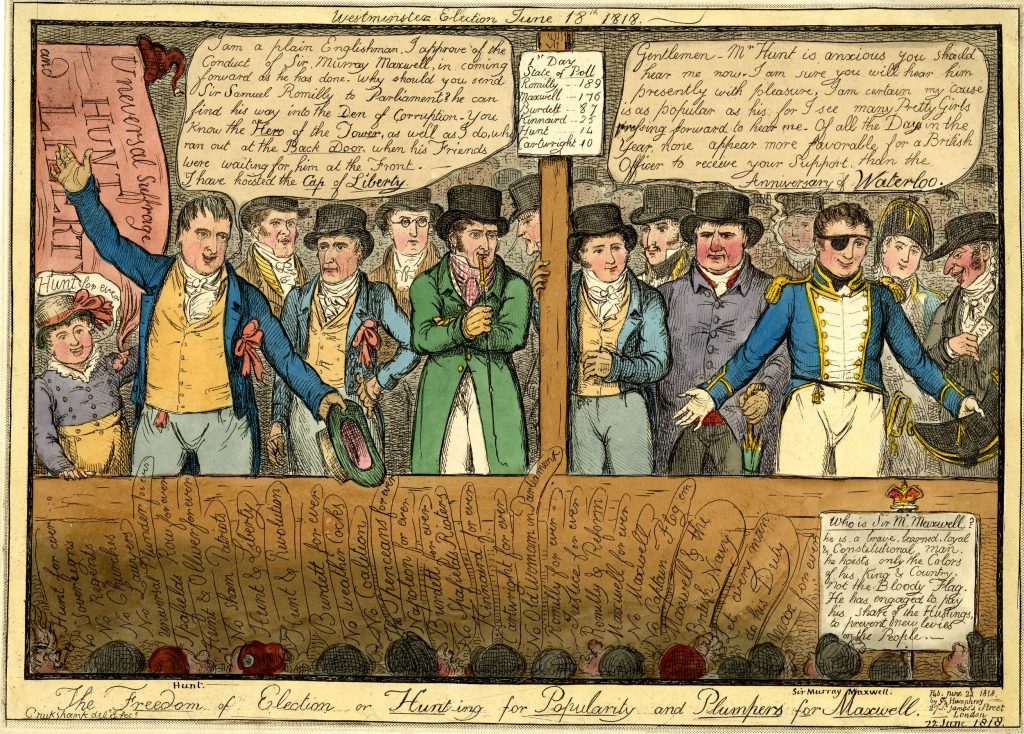 Westminster Election June 18th 1818.
and
Universal Suffrage
HUNT
LIBERTY
I am a plain Englishman. I approve of the
Conduct of Sir Murray Maxwell, in coming
forward as he has done. Why should you send
Sir Samuel Romilly to Parliament? he can
find his way into the Den of Corruption. You
Know the Hero of the Tower, as well as I do, who
ran out at the Back Door, when his Friends
were waiting for him at the Front.
I have hoisted the Cap of Liberty
Day
State of Poll
Romilly - 189
Maxwell - 176
Burdett - 87
Kinnaird - 25
Hunt - 14
Cartwright 10
Gentlemen - Mr Hunt is anxious you should
hear me now. I am sure you will hear him
presently with pleasure, I am certain my Cause
is as popular as his, for I see many Pretty Girls
pressing forward to hear me - Of all the Days in the
Year, none appear more favorable for a British
Officer to receive your Support, than the
Anniversary of Waterloo.
Hunt for ever
Hunt for ever
No Sovereigns
No Regents
No Churches
No Lawyers
Plunder for ever
for ever
Skate Lane for ever
Hunt & Liberty
Hunt & Revolution
Burdett for ever
No weather Cocks
No Coalition
Spenceans for ever
Napoleon for ever
Burdett for ever
No Spafields Rioters
Kinnaird for ever
and
No Waithmean in Parliament
Romilly for ever
Hunt for ever
and Reform
Maxwell for ever
No Maxwell
Sixteen Flog em
Maxwell & the
Navy
Let every man
do his Duty
for ever
Who is Sir M. Maxwell?
he is a brave, learned, loyal
& Constitutional man.
he hoists only the Colors
of his King & Country
not the Bloody Flag.
He has engaged to pay
his share of the Hustings,
to prevent new levies
on the People.
Hunt.
Sir Murray Maxwell.
The Freedom of Election or Hunt-ing for Popularity and Plumpers for Maxwell.
Cruikshank del & fect
Pub. June 22 1818.
by G. Humphrey
27 St James's Street
London
22 June 1818.